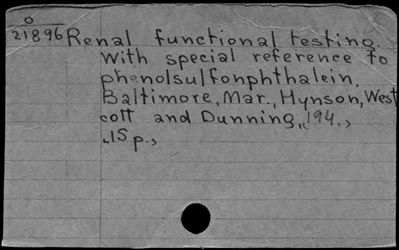 0
21896 Renal functional testing.
With special reference to
phenolsulfonphthalein,
Baltimore, Mar., Hynson, West
cott and Dunning, 194.,
15 p.,